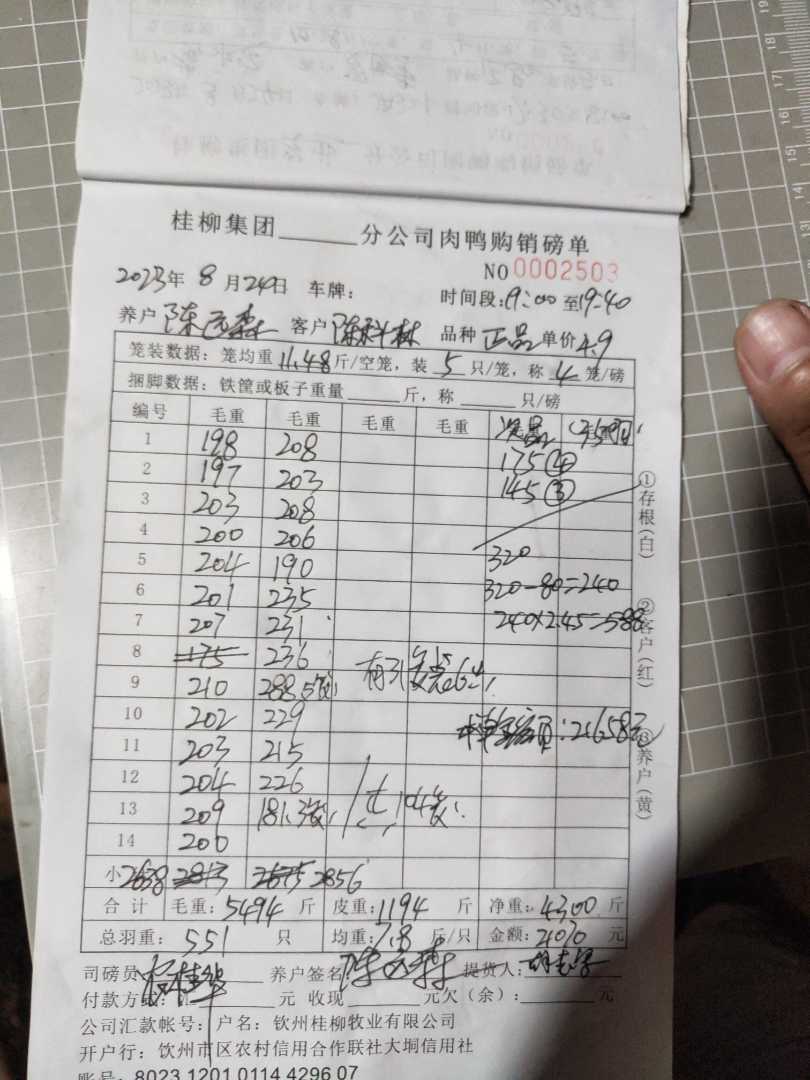 桂柳集团______分公司肉鸭购销磅单
NO 0002503
2023年 8月24日 车牌： 时间段:19:00至19:40
养户 陈 森 客户 陈科林 品种 正品 单价4.9
笼装数据：笼均重 11.48斤/空笼，装 5 只/笼，称 4 笼/磅
捆脚数据：铁筐或板子重量______斤，称______只/磅
编号 毛重 毛重 毛重 毛重 次品
1 198 208 175④
2 197 203 145③
3 203 208
4 200 206
5 204 190 320
6 201 235 320-80=240
7 207 231 240×2.45=588
8 175 236
9 210 288.5
10 202 229
11 203 215 :21658元
12 204 226
13 209 181.3
14 200
小 2638 2813 2675 2856
合计 毛重：5494 斤 皮重：1194 斤 净重：4300 斤
总羽重：551 只 均重：7.8 斤/只 金额：21070 元
司磅员 养户签名 陈 森 提货人：
付款方式： 元 收现______元欠（余）：______元
公司汇款帐号：户名：钦州桂柳牧业有限公司
开户行：饮州市区农村信用合作联社大垌信用社
账号：8023 1201 0114 4296 07
①存根（白） ②客户（红） ③养户（黄）